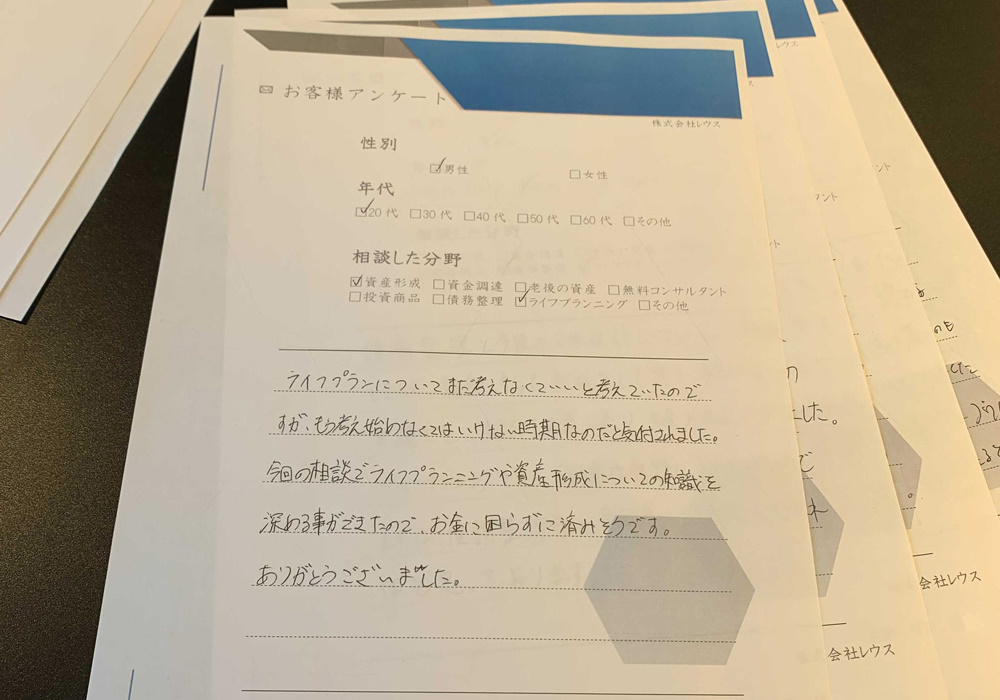 お客様アンケート
株式会社レウス
性別
☑男性 ☐女性
年代
☑20代 ☐30代 ☐40代 ☐50代 ☐60代 ☐その他
相談した分野
☑資産形成 ☐資金調達 ☐老後の資産 ☐無料コンサルタント
☐投資商品 ☐債務整理 ☑ライフプランニング ☐その他
ライフプランについてまだ考えなくていいと考えていたので
すが、もう考え始めなくてはいけない時期なのだと気付されました。
今回の相談でライフプランニングや資産形成についての知識を
深める事ができたので、お金に困らずに済みそうです。
ありがとうございました。
した。
会社レウス
会社レウス